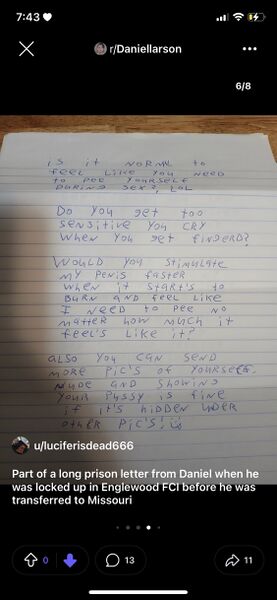 7:43
r/Daniellarson
6/8
is it NORMAL to
feel LIKE YOU NEED
to PEE YOURSELF
DURING SEX?, LOL
DO YOU get too
SENSITIVE YOU CRY
WHEN YOU get FINGERD?
WOULD YOU STIMULATE
MY PENIS FASTER
WHEN it STARt'S to
BURN AND FEEL LIKE
I NEED to PEE NO
MATTER HOW MUCH it
FEEL'S LIKE it?
ALSO YOU CAN SEND
MORE PIC'S OF YOURSELF.
NUDE AND SHOWING
YOUR PUSSY IS FINE
if it'S HIDDEN UNDER
OTHER PIC'S!
u/luciferisdead666
Part of a long prison letter from Daniel when he
was locked up in Englewood FCI before he was
transferred to Missouri
0
13
11